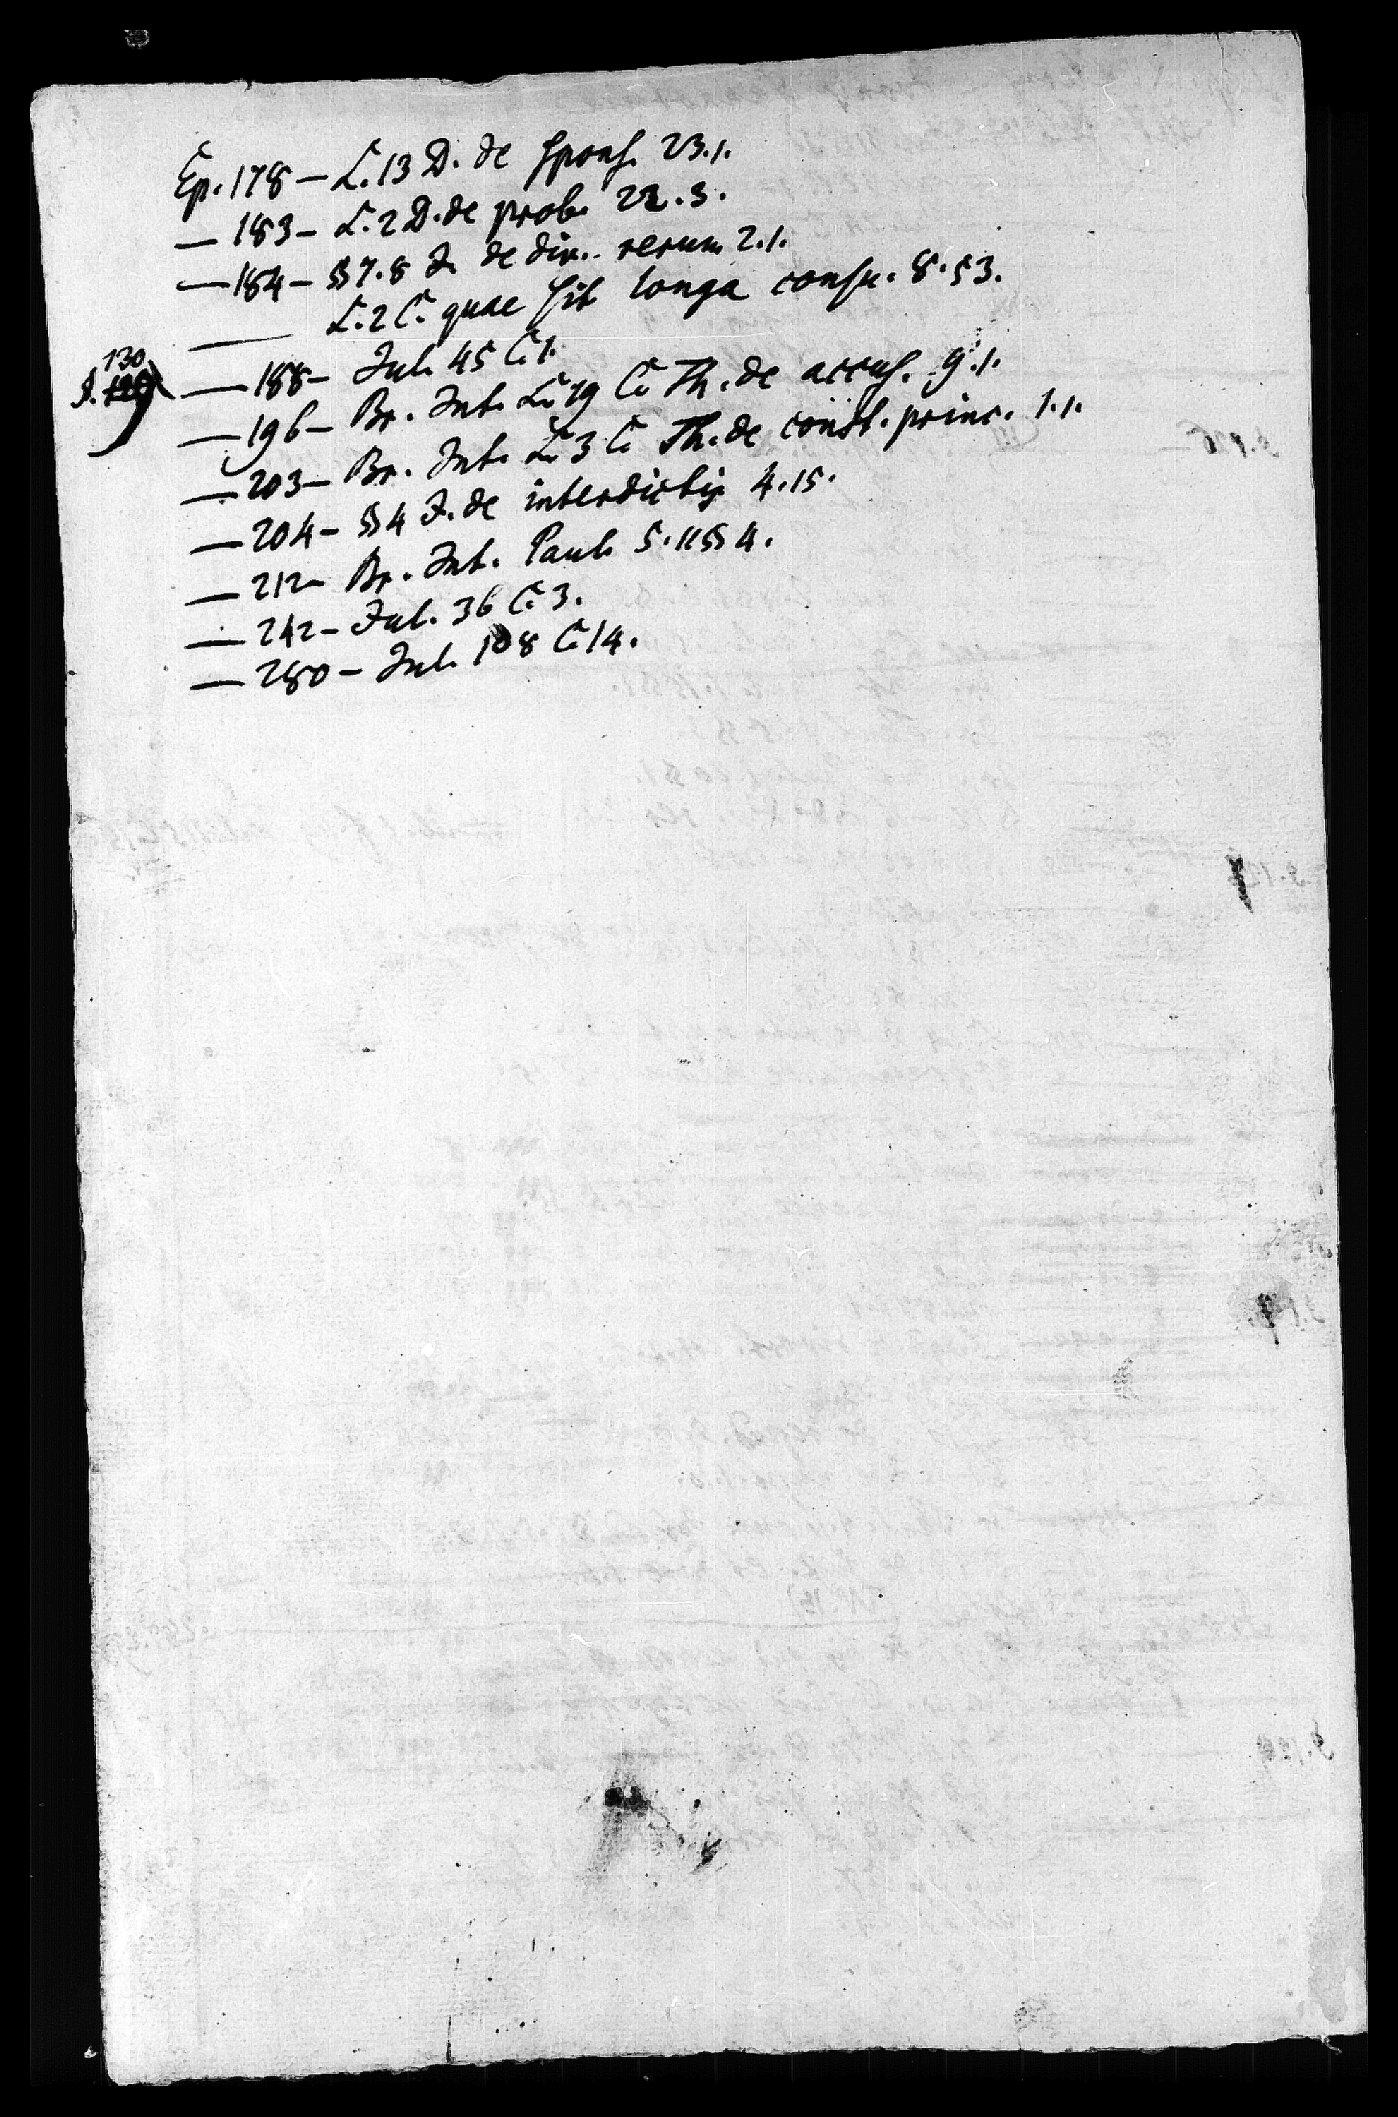 Ep. 178 – L. 13 D. de spons. 23.1.
— 183 – L. 2 D. de prob. 22.3.
— 184 – §§ 7.8 I. de div. rerum 2.1.
— L. 2 C. quae sit longa consu. 8.53.
130
S.
— 188 – Jul. 45 C. 1.
— 196 – Br. Int. L. 19 C. Th. de accus. 9.1.
— 203 – Br. Int. L. 3 C. Th. de const. princ. 1.1.
— 204 – § 4 I. de interdictis 4.15.
— 212 – Br. Int. Paul. 5.11 § 4.
— 242 – Jul. 36 C. 3.
— 280 – Jul. 108 C. 14.